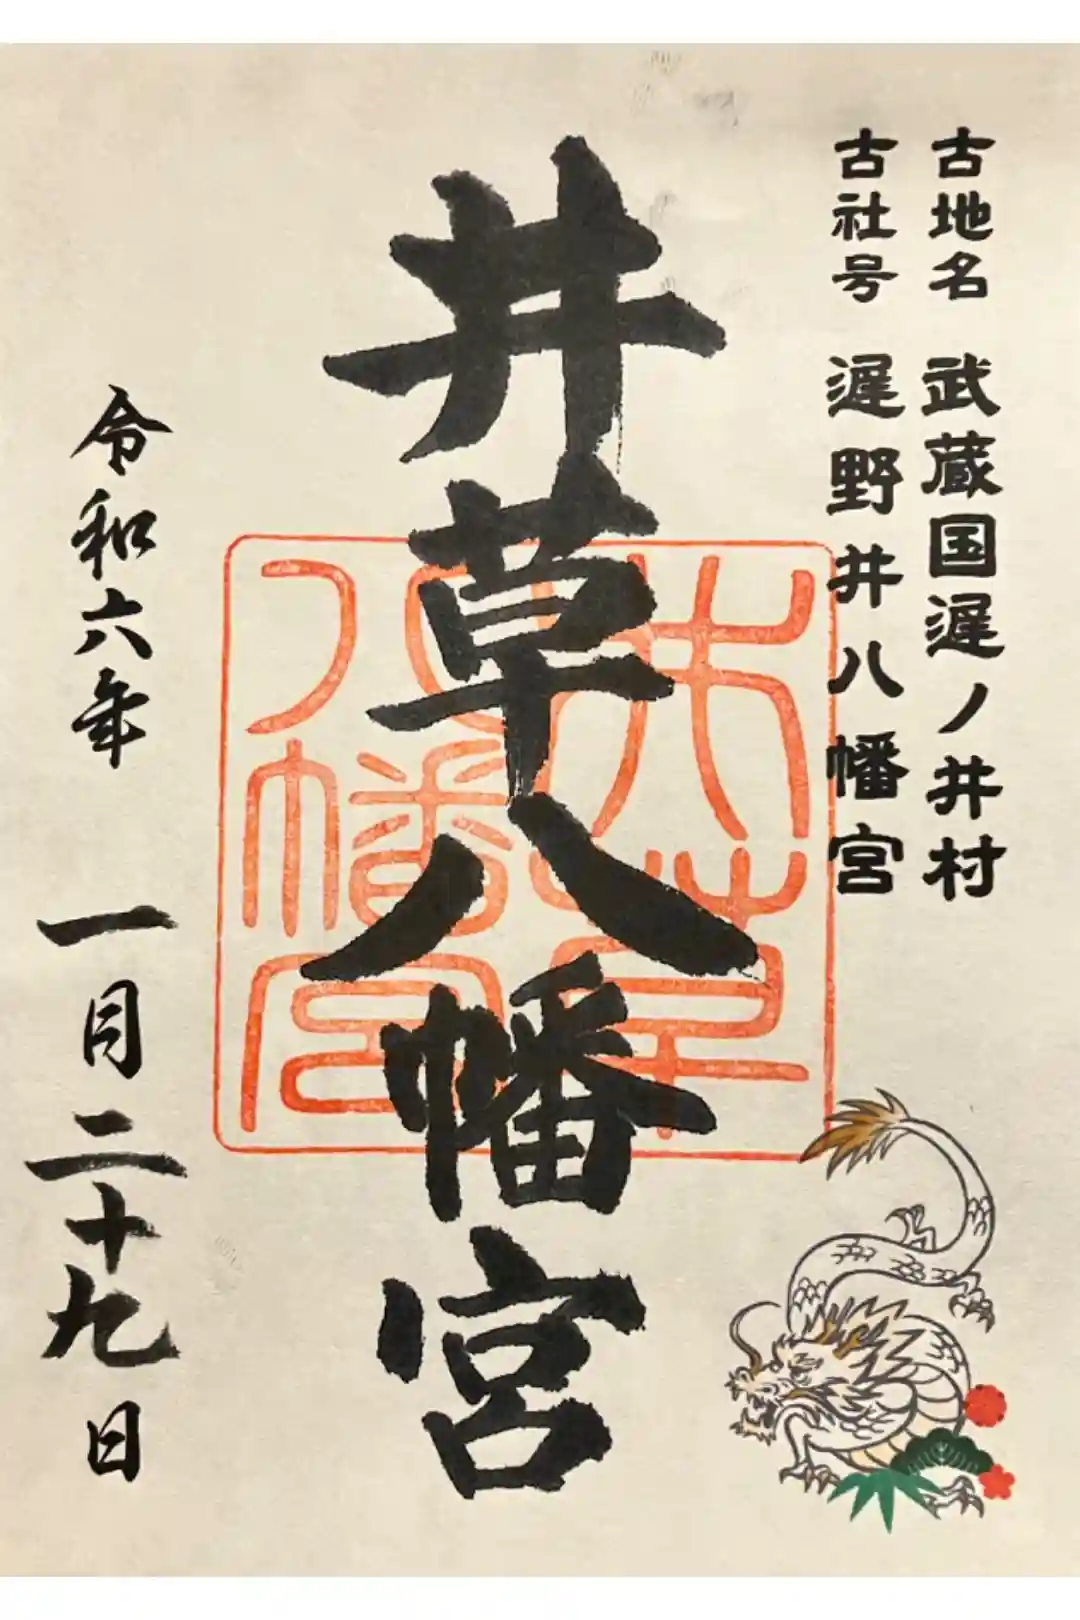 古地名 武蔵国遅ノ井村
古社号 遅野井八幡宮
井草八幡宮
井草
八幡宮
令和六年 一月二十九日